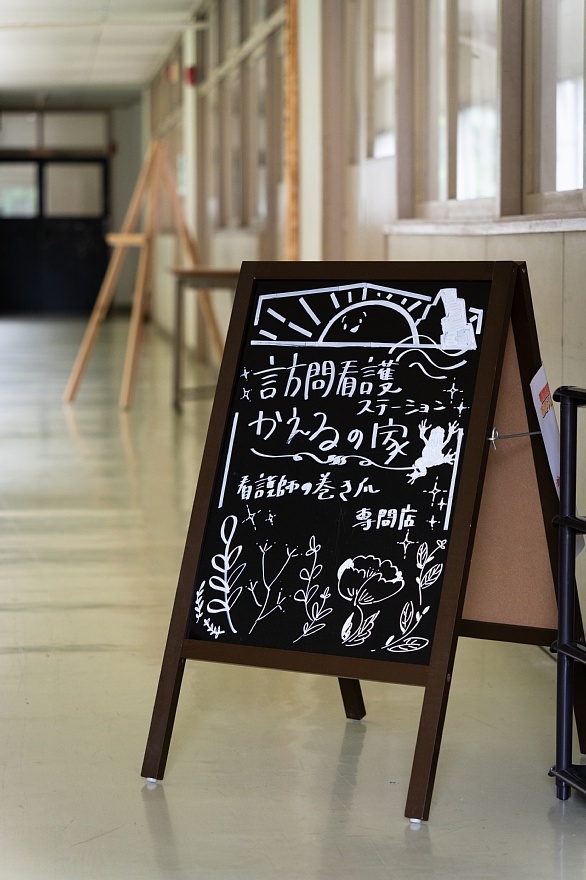 訪問看護
ステーション
かえるの家
看護師の巻き爪
専門店